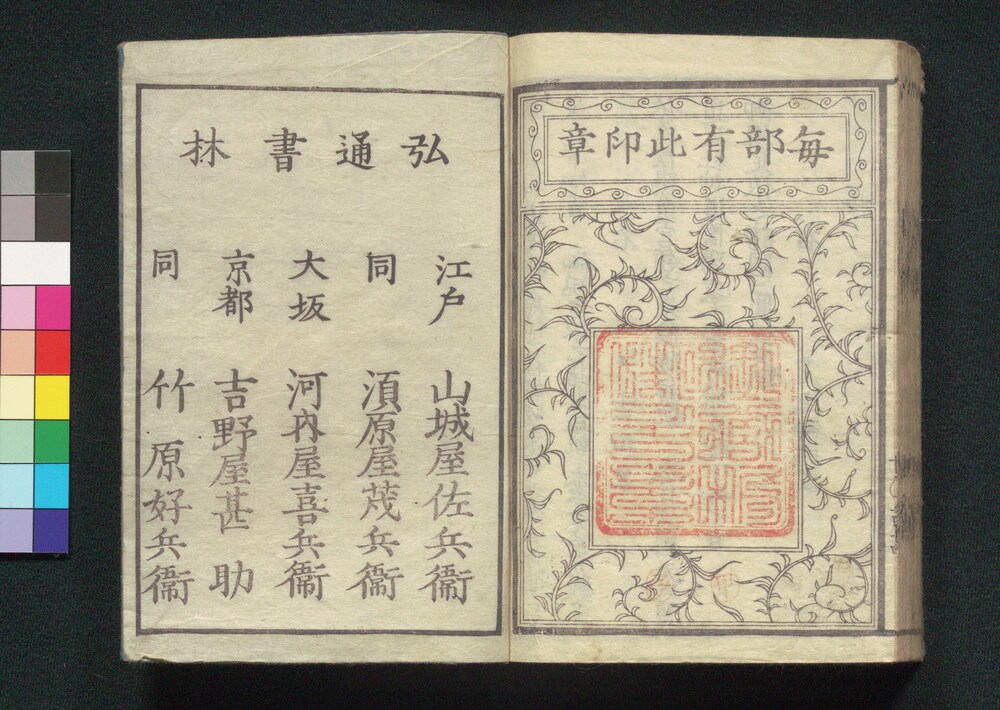 毎部有此印章
弘通書林
江戸 山城屋佐兵衞
同 須原屋茂兵衞
大坂 河内屋喜兵衞
京都 吉野屋甚助
同 竹原好兵衞